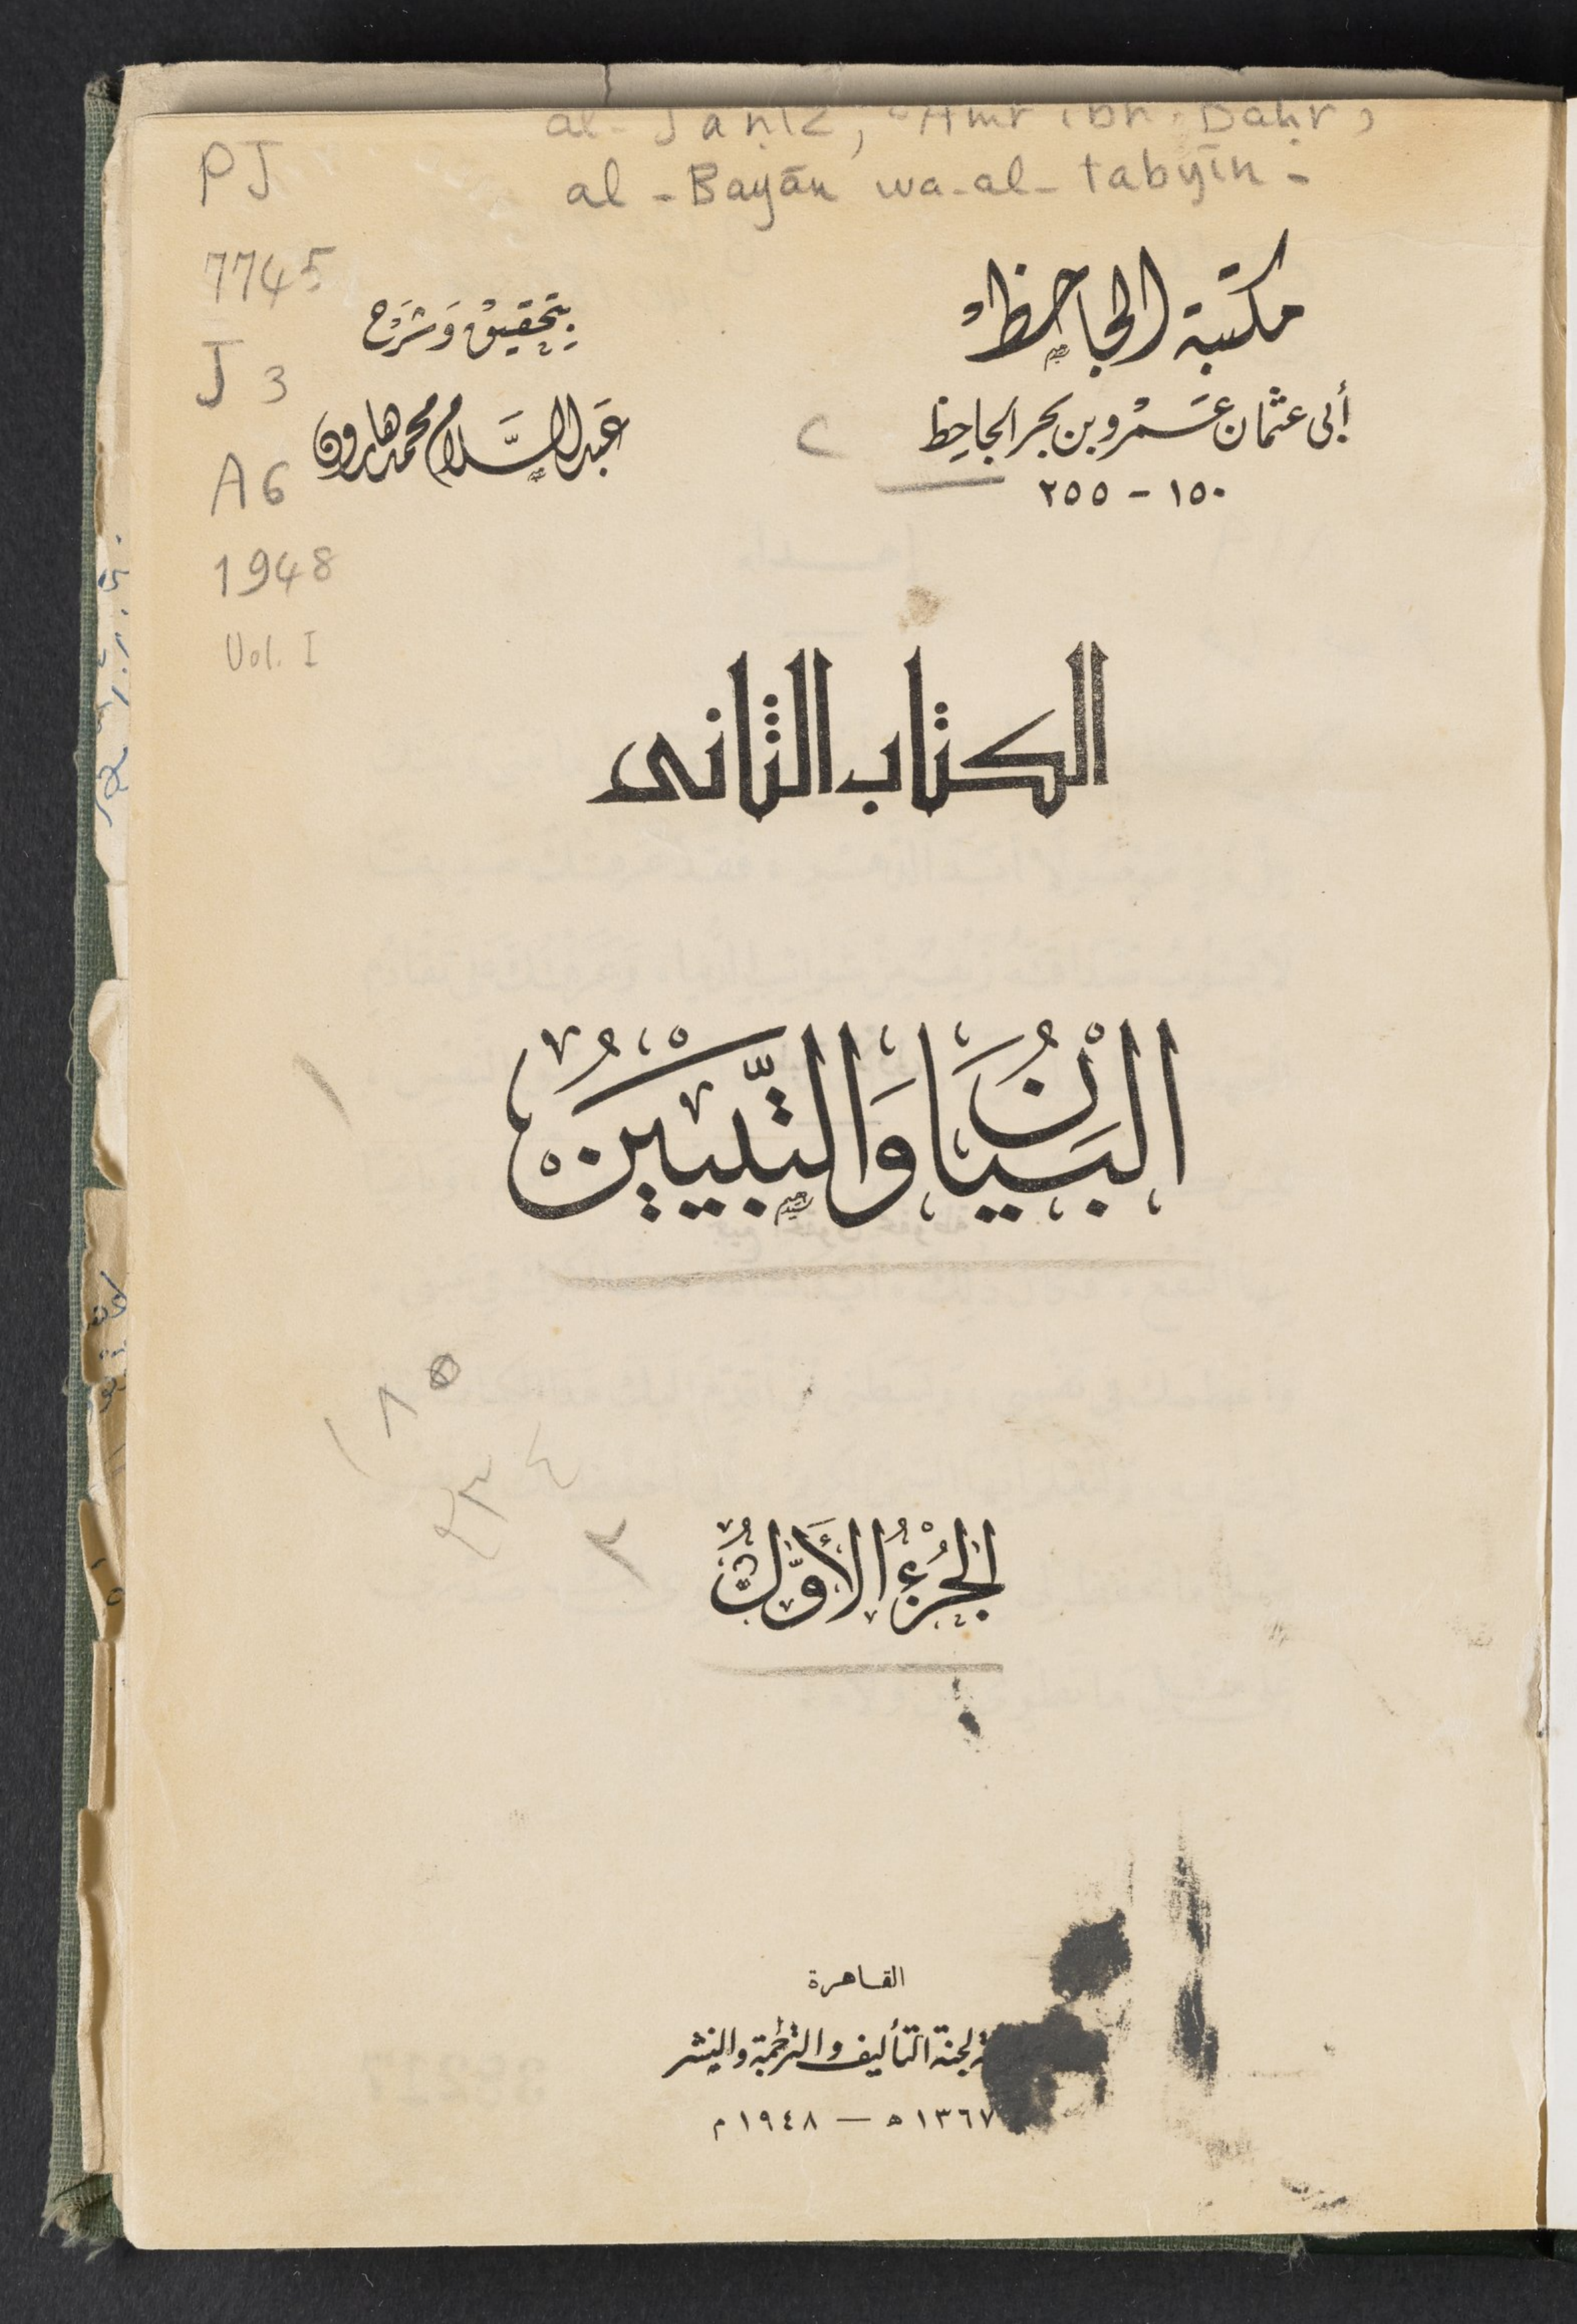 al-Jāḥiẓ, ʿAmr ibn Baḥr,
al-Bayān wa-al-tabyīn-
PJ
7745
J3
A6
1948
Vol. I
مكتبة الجاحظ
أبى عثمان عَمْرو بن بحر الجاحِظ
١٥٠ – ٢٥٥
٢
بتحقيق وَشَرْح
عَبد السَّلام محمد هارون
الكتاب الثانى
البَيَانُ وَالتَّبيين
١
١٨٥
٢٣٤
٢
الجُزءُ الأَوَّلُ
القاهرة
لجنة التأليف والترجمة والنشر
١٣٦٧ ه — ١٩٤٨ م